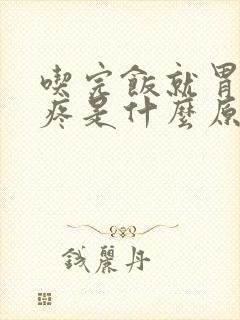 喫完飯就胃
疼是什麼原
錢麗丹